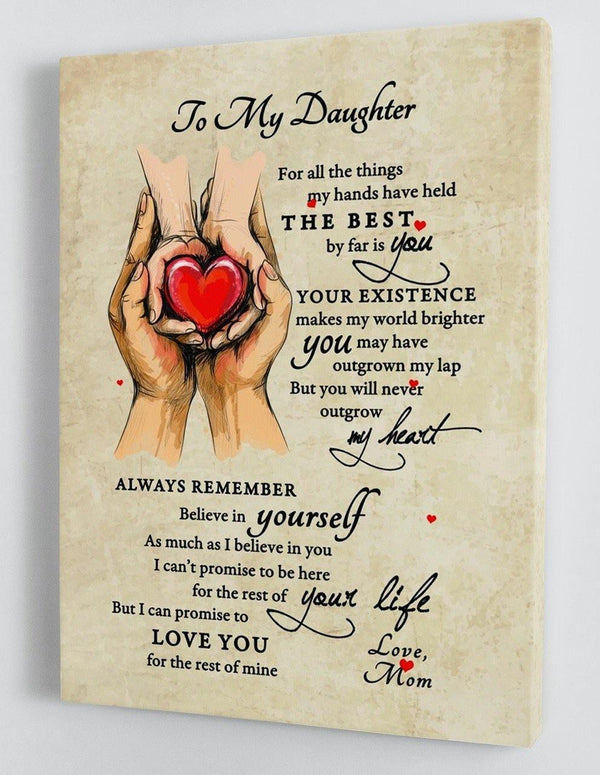 To My Daughter
For all the things
my hands have held
THE BEST
by far is you
YOUR EXISTENCE
makes my world brighter
you may have
outgrown my lap
But you will never
outgrow
my heart
ALWAYS REMEMBER
Believe in yourself
As much as I believe in you
I can't promise to be here
for the rest of your life
But I can promise to
LOVE YOU
for the rest of mine
Love,
Mom